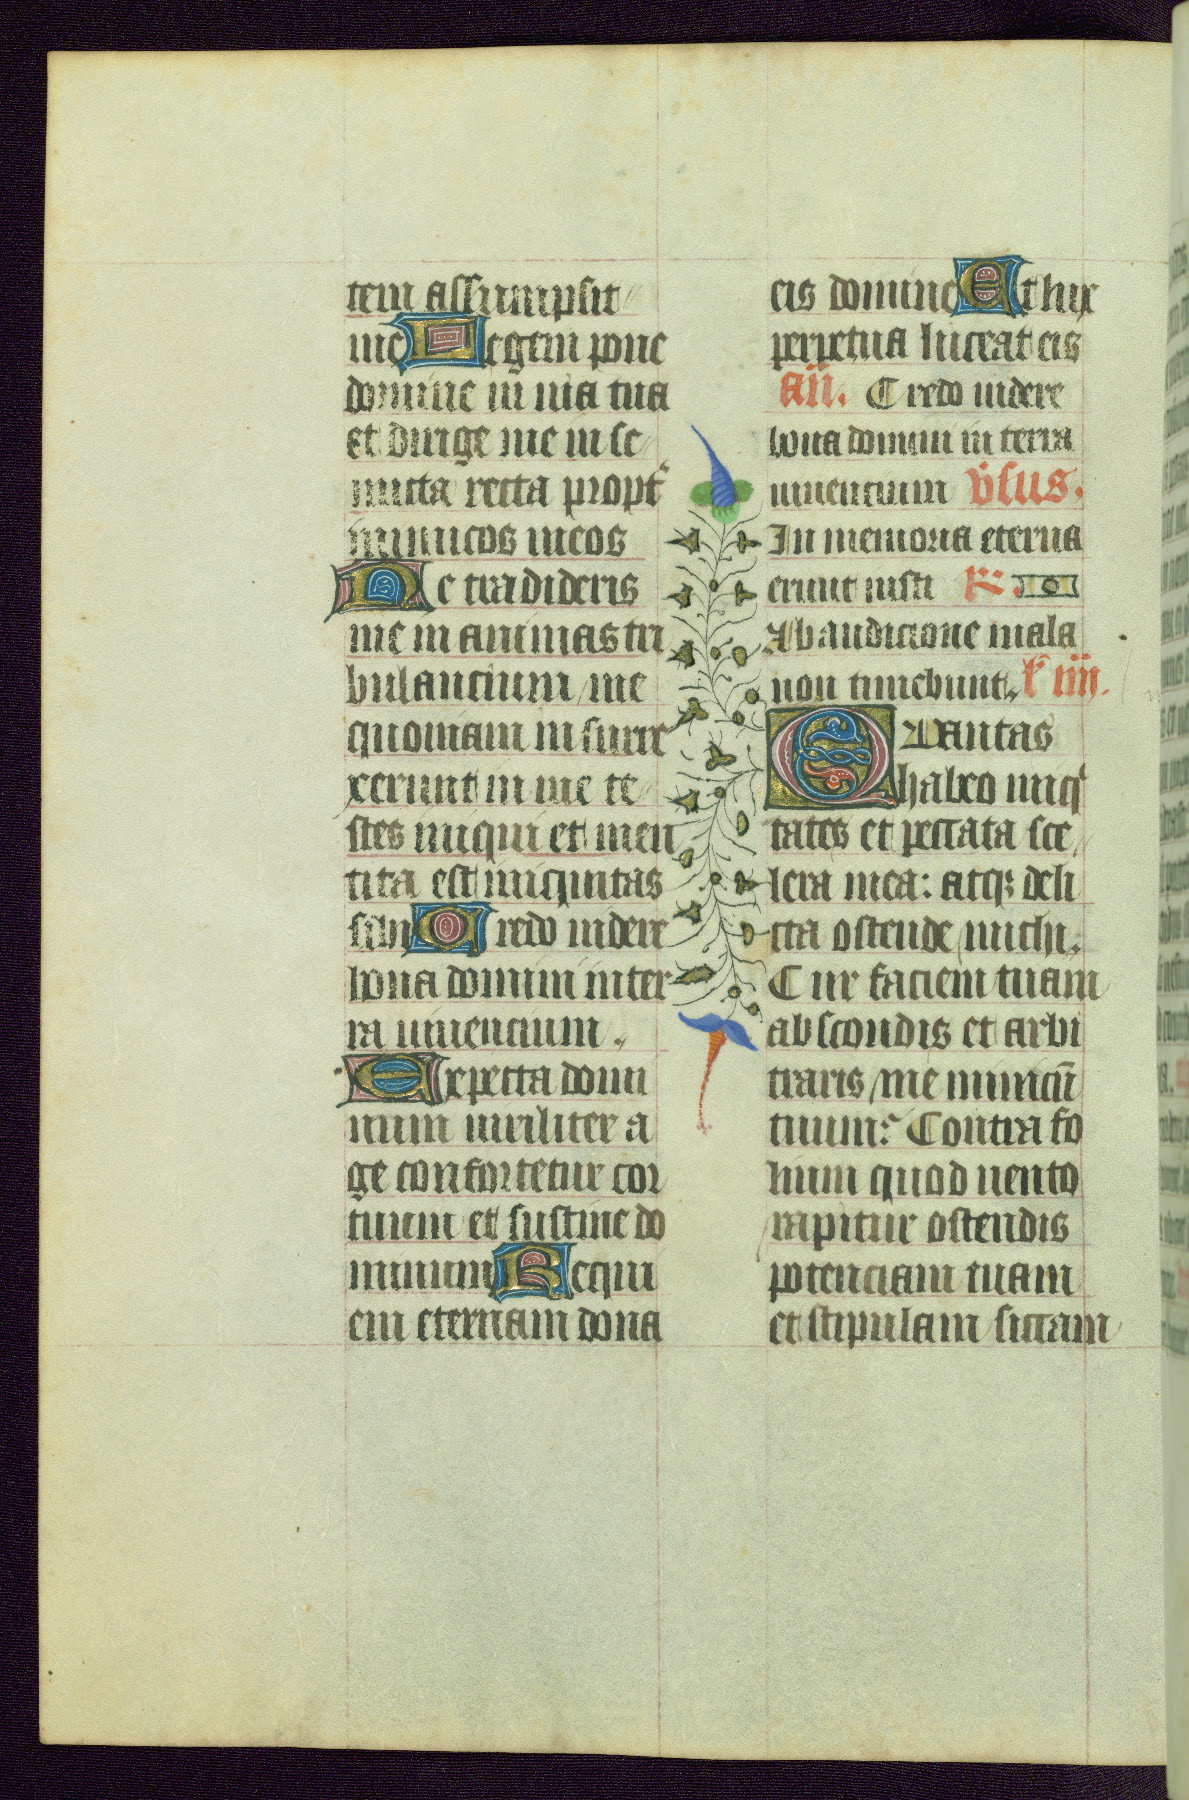 tem assumpsit
me Legem pone
domine in uia tua
et dirige me in se
mitta recta propt̉
inimicos meos
Ne tradideris
me in animas tri
bulancium me
quoniam insurre
xerunt in me te
stes iniqui et men
tita est iniquitas
sibi Credo uidere
bona domini in ter
ra uiuencium.
Expecta domi
num uiriliter a
ge confortetur cor
tuum et sustine do
minum Requi
em eternam dona
eis domine Et lux
perpetua luceat eis
añ. Credo uidere
bona domini in terra
uiuencium v̉sus.
In memoria eterna
erunt iusti R.
Ab audicione mala
non timebunt. l̃ iiii.
Quantas
habeo iniqⁱ
tates et peccata sce
lera mea: atqꝫ deli
cta ostende michi.
Cur faciem tuam
abscondis et arbi
traris me inimicũ
tuum? Contra fo
lium quod uento
rapitur ostendis
potenciam tuam
et stipulam siccam